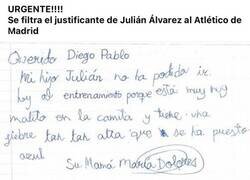 URGENTE!!!!
Se filtra el justificante de Julián Álvarez al Atlético de
Madrid
Querido Diego Pablo
Mi hijo Julián no ha podido ir
hoy al entrenamiento porque está muy muy
malito en la camita y tiene una
fiebre tan tan alta que se ha puesto
azul
Su Mamá María Dolores